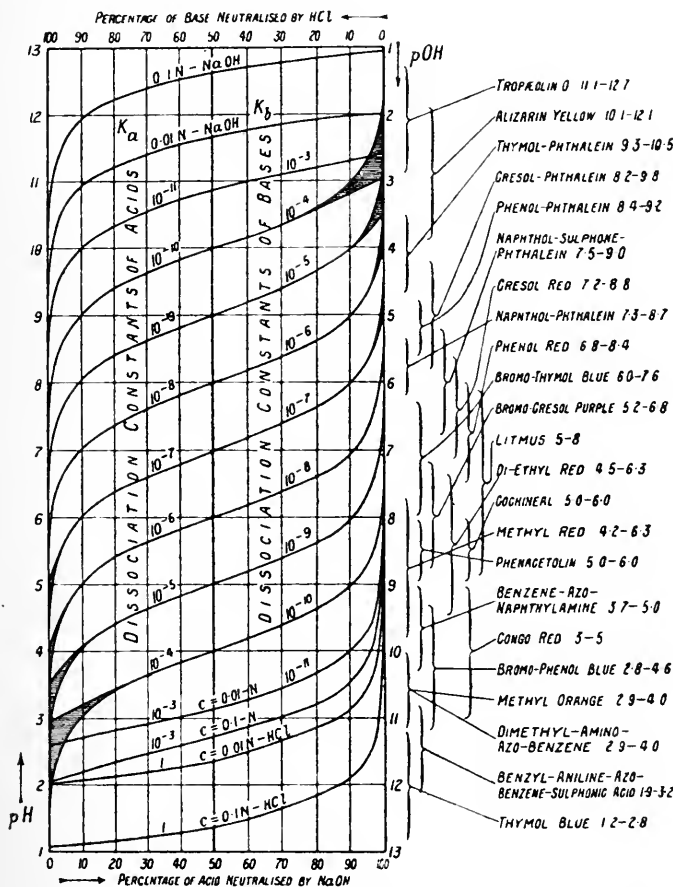 PERCENTAGE OF BASE NEUTRALISED BY HCl
100 90 80 70 60 50 40 30 20 10 0
13
12
11
10
9
8
7
6
5
4
3
2
1
pH
1
2
3
4
5
6
7
8
9
10
11
12
13
pOH
0.1N-NaOH
0.01N-NaOH
Ka
Kb
DISSOCIATION CONSTANTS OF ACIDS
DISSOCIATION CONSTANTS OF BASES
10-11
10-10
10-9
10-8
10-7
10-6
10-5
10-4
10-3
10-3
1
1
10-3
10-4
10-5
10-6
10-7
10-8
10-9
10-10
10-11
C=0.01-N
C=0.1-N
C=0.01N-HCl
C=0.1N-HCl
0 10 20 30 40 50 60 70 80 90 100
PERCENTAGE OF ACID NEUTRALISED BY NaOH
TROPÆOLIN O 11.1-12.7
ALIZARIN YELLOW 10.1-12.1
THYMOL-PHTHALEIN 9.3-10.5
CRESOL-PHTHALEIN 8.2-9.8
PHENOL-PHTHALEIN 8.4-9.2
NAPHTHOL-SULPHONE-
PHTHALEIN 7.5-9.0
CRESOL RED 7.2-8.8
NAPHTHOL-PHTHALEIN 7.3-8.7
PHENOL RED 6.8-8.4
BROMO-THYMOL BLUE 6.0-7.6
BROMO-CRESOL PURPLE 5.2-6.8
LITMUS 5-8
DI-ETHYL RED 4.5-6.3
COCHINEAL 5.0-6.0
METHYL RED 4.2-6.3
PHENACETOLIN 5.0-6.0
BENZENE-AZO-
NAPHTHYLAMINE 3.7-5.0
CONGO RED 3-5
BROMO-PHENOL BLUE 2.8-4.6
METHYL ORANGE 2.9-4.0
DIMETHYL-AMINO-
AZO-BENZENE 2.9-4.0
BENZYL-ANILINE-AZO-
BENZENE-SULPHONIC ACID 1.9-3.2
THYMOL BLUE 1.2-2.8